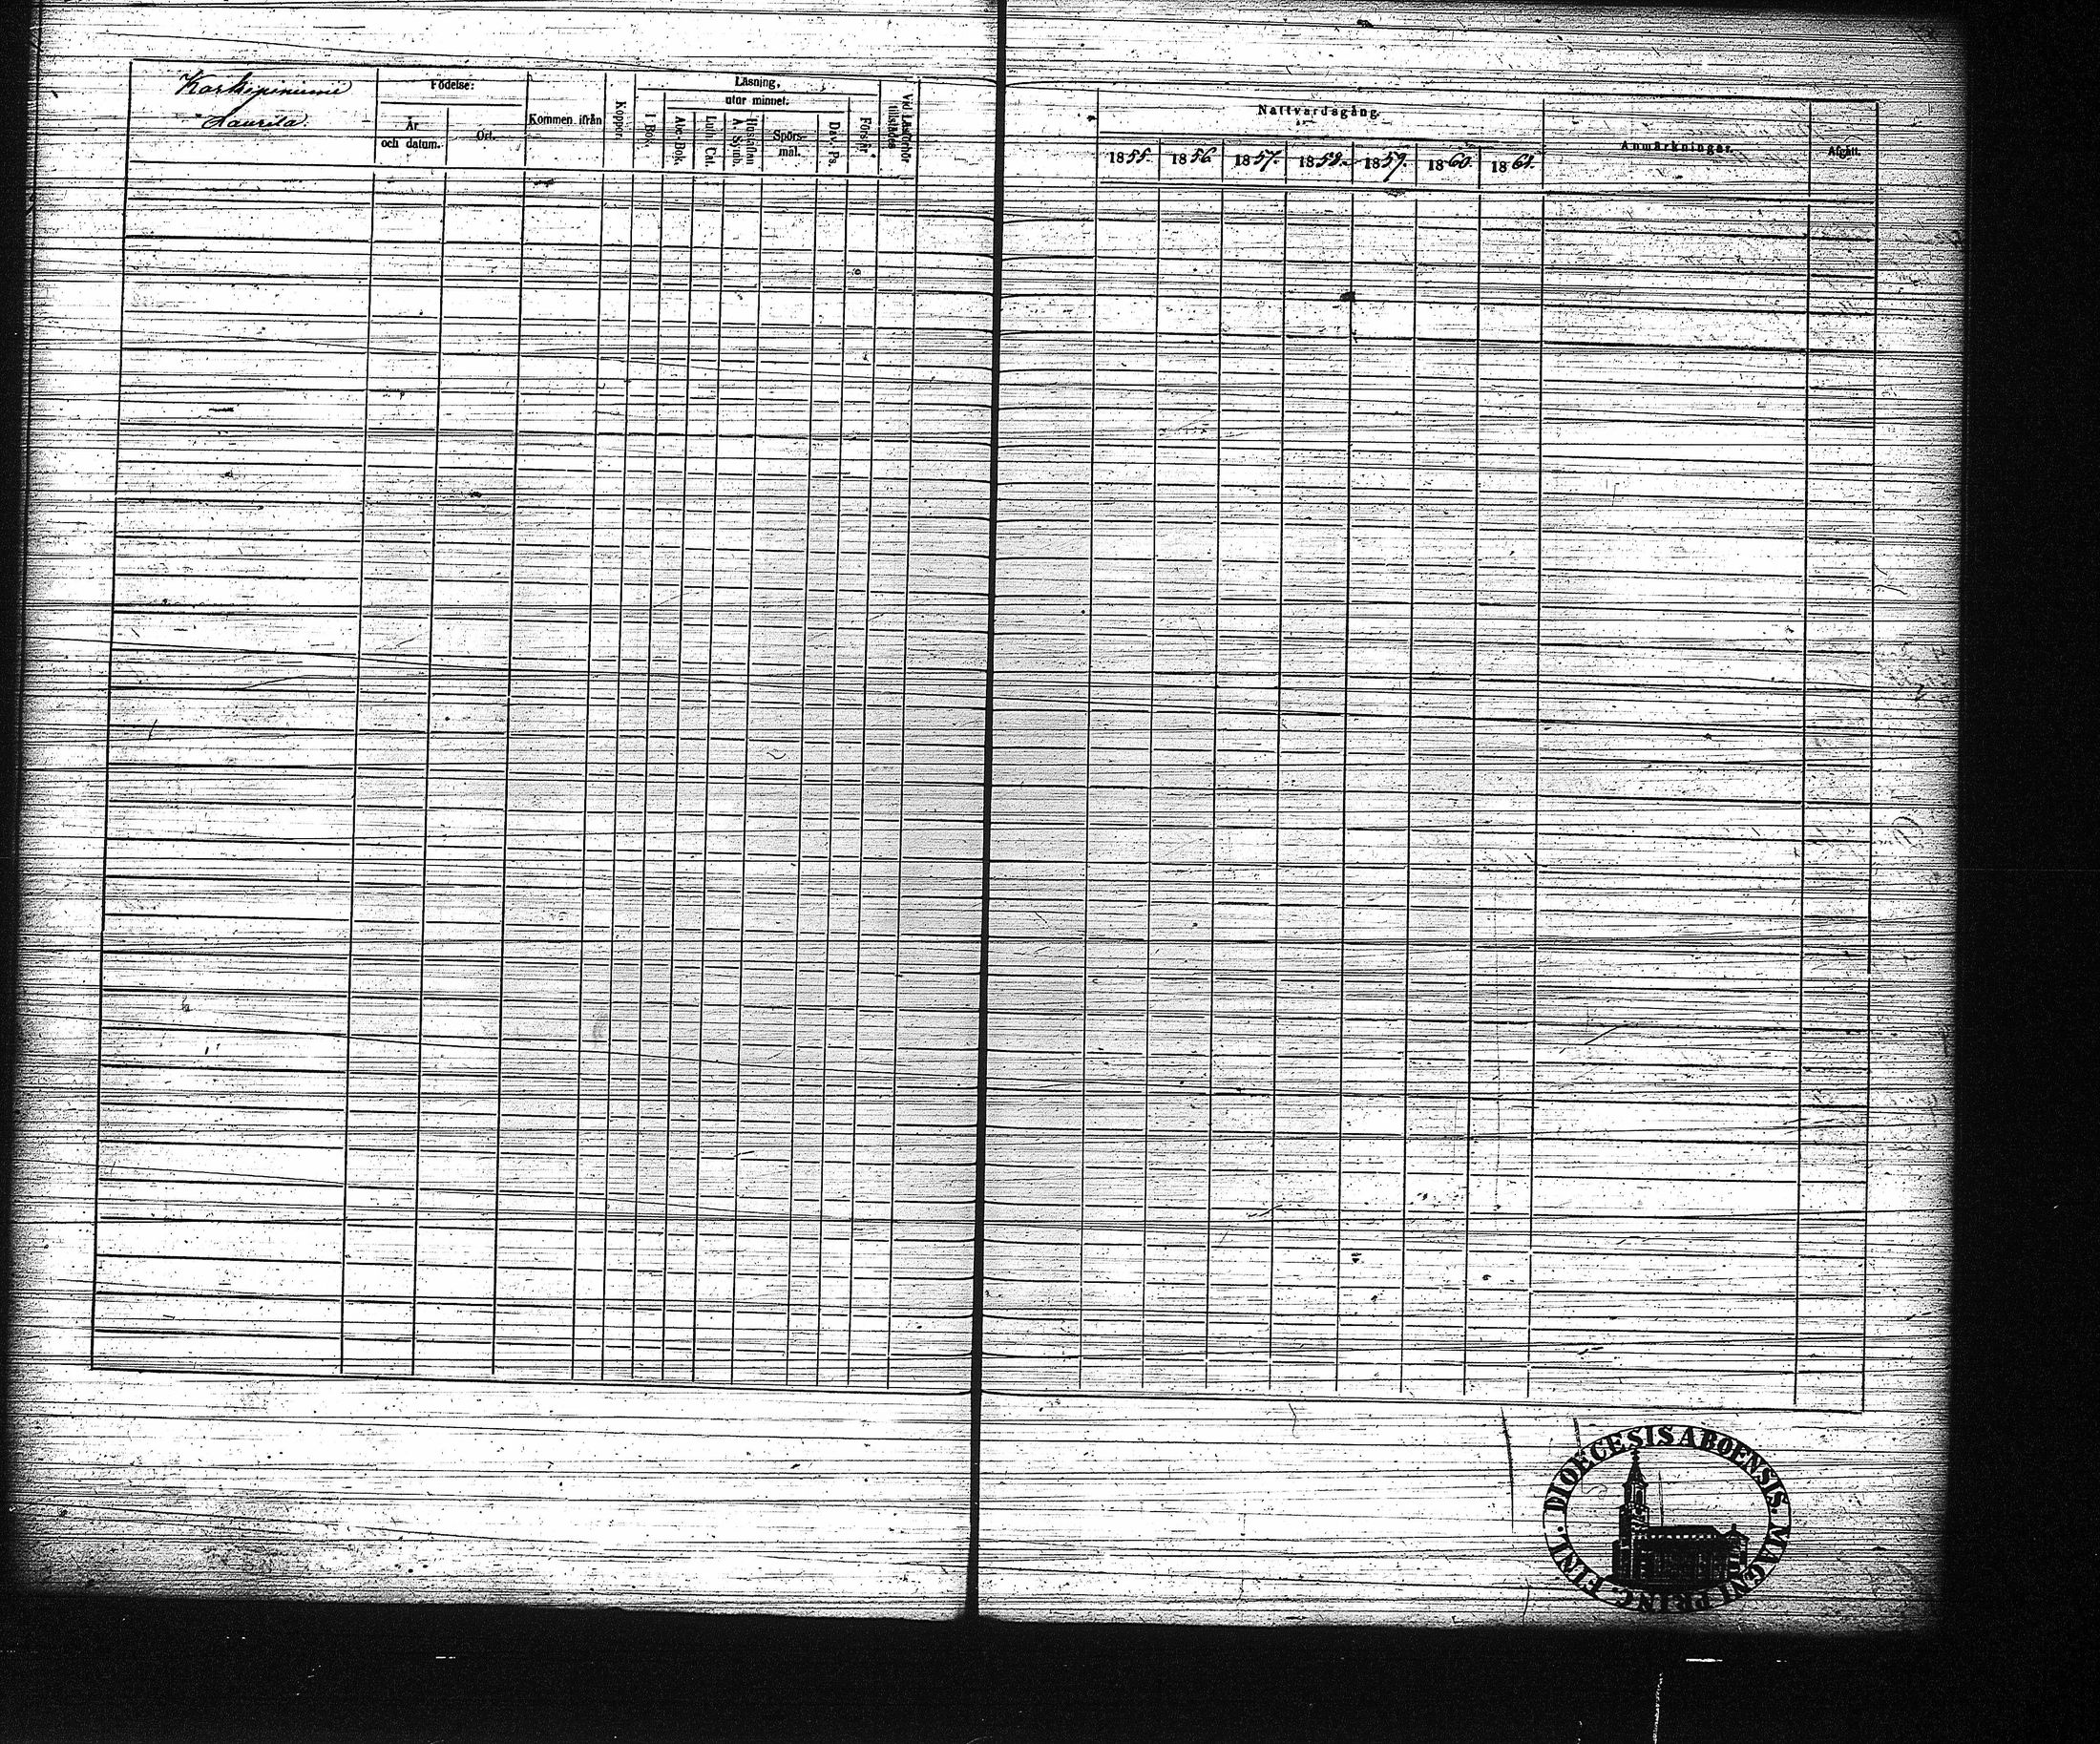 Karhiniemi
Laurila.
Födelse:
År
och datum.
Ort.
Kommen ifrån
Koppor.
Läsning,
utur minnet.
I Bok.
Abc-Bok.
Luth. Cat.
Hustaflan
A. Symb.
Spörs-
mål.
Dav. Ps.
Förstår.
Vid Läsförhör
tillstädes
Nattvardsgång.
1855.
1856.
1857.
1858.
1859.
1860.
1861.
Anmärkningar.
Afgått.
DIOECESIS ABOENSIS. MAGNI PRINC. FINL.